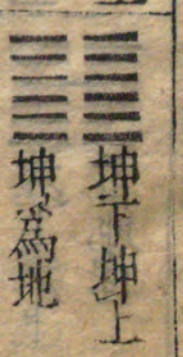 坤下坤上
坤為地